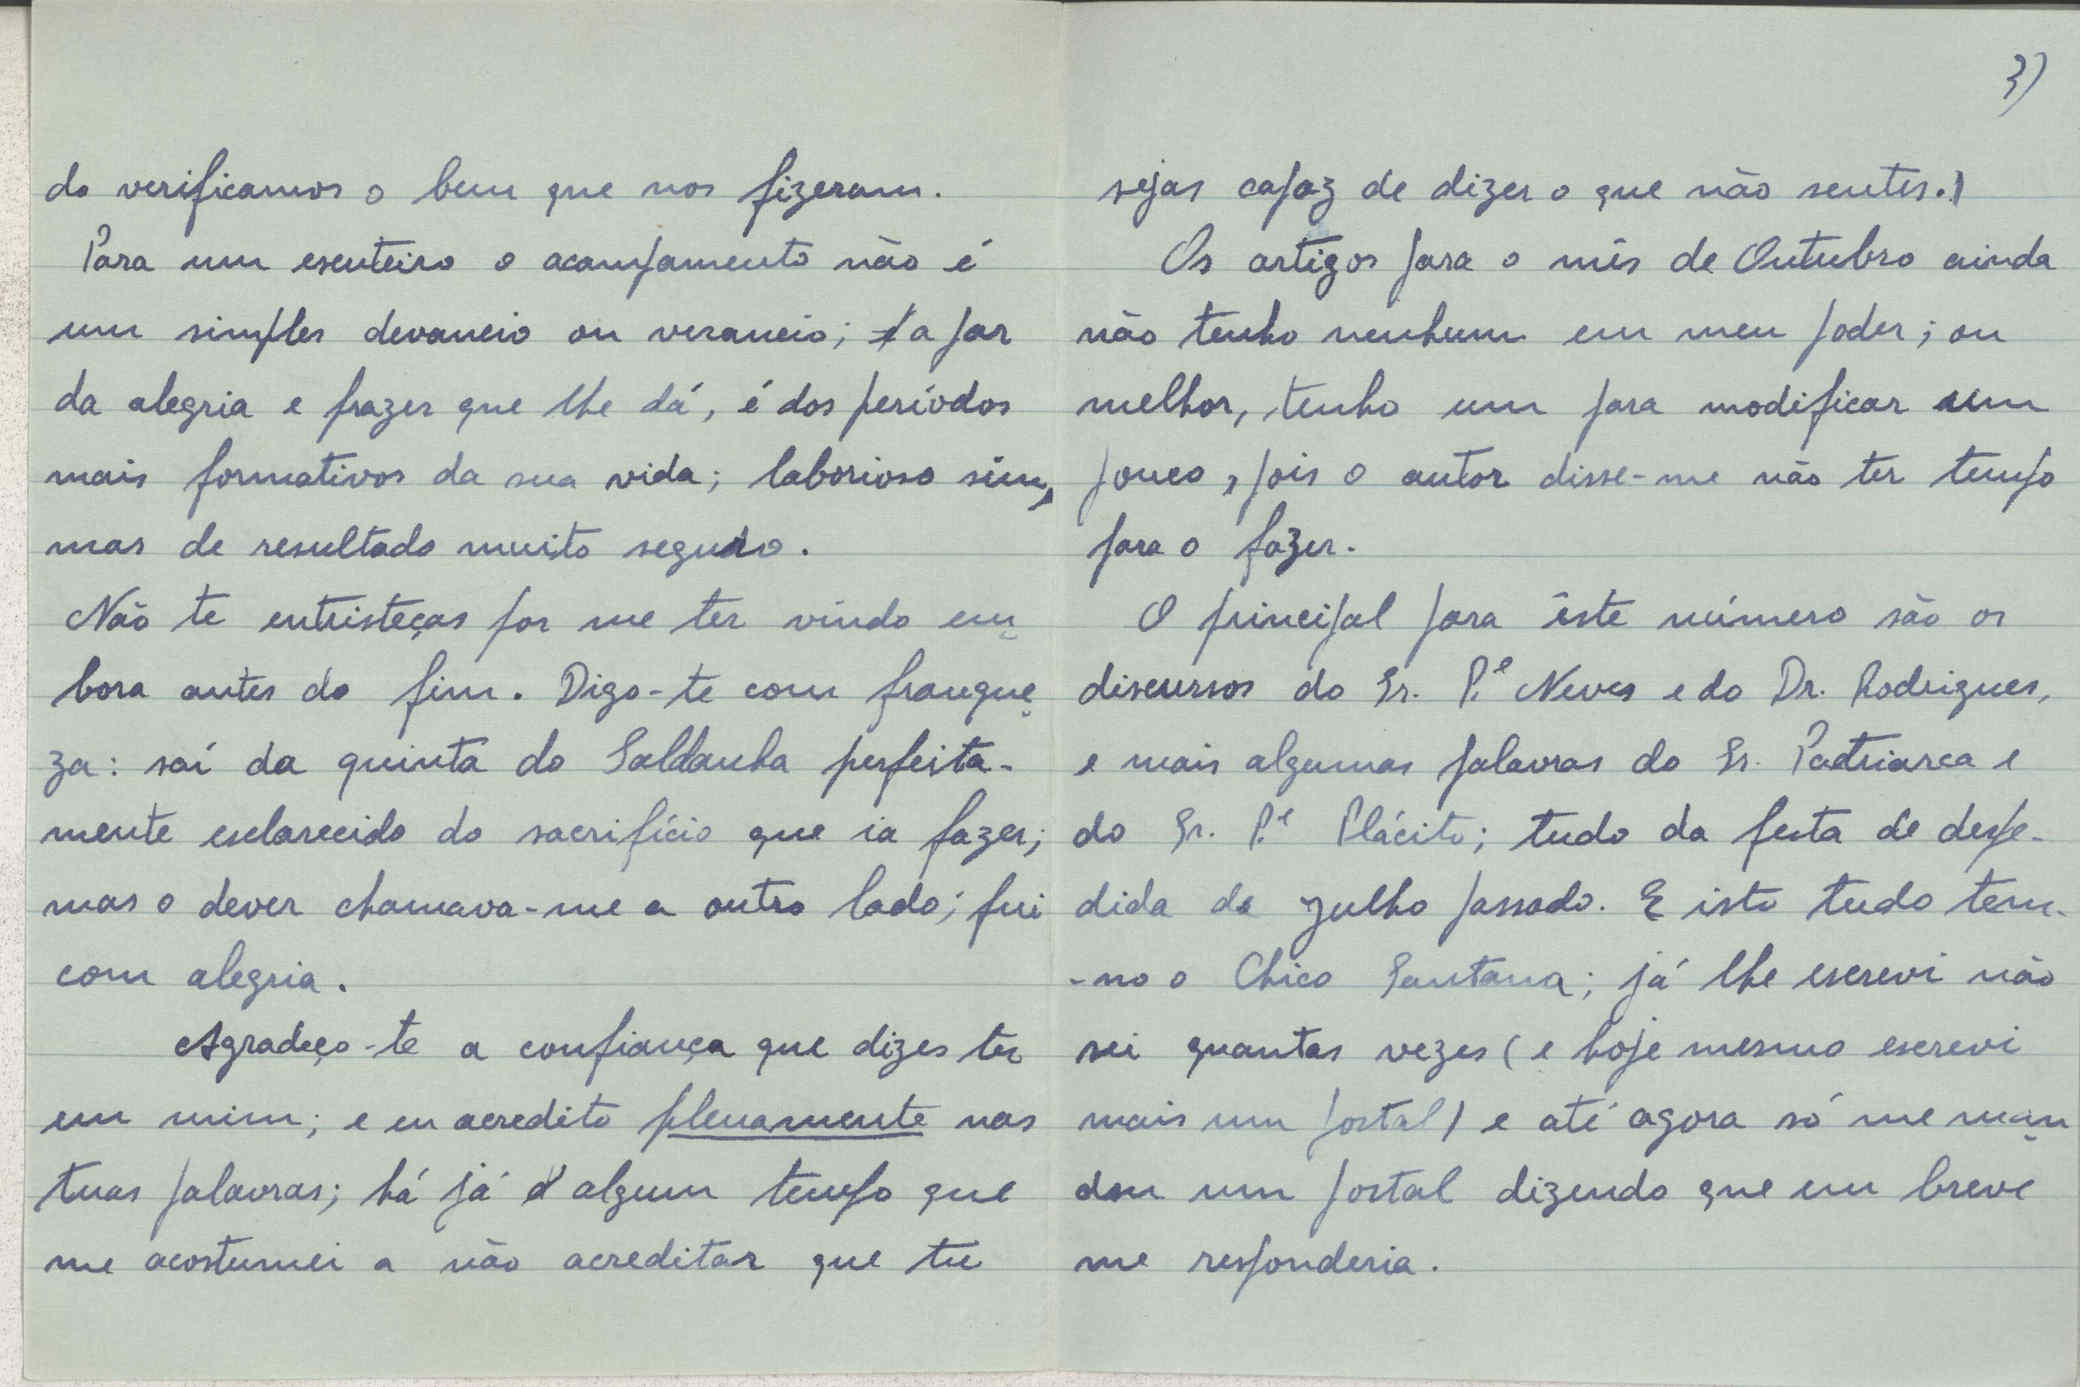 do verificamos o bem que nos fizeram.
Para um escuteiro o acampamento não é
um simples devaneio ou veraneio; a par
da alegria e prazer que lhe dá, é dos períodos
mais formativos da sua vida; laborioso sim,
mas de resultado muito seguro.
Não te entristeças por me ter vindo em-
bora antes do fim. Digo-te com franque-
za: saí da quinta do Saldanha perfeita-
mente esclarecido do sacrifício que ia fazer;
mas o dever chamava-me a outro lado; fui
com alegria.
Agradeço-te a confiança que dizes ter
em mim; e eu acredito plenamente nas
tuas palavras; há já algum tempo que
me acostumei a não acreditar que tu
3)
sejas capaz de dizer o que não sentes.)
Os artigos para o mês de Outubro ainda
não tenho nenhum em meu poder; ou
melhor, tenho um para modificar um
pouco, pois o autor disse-me não ter tempo
para o fazer.
O principal para êste número são os
discursos do Sr. P.e Neves e do Dr. Rodrigues,
e mais algumas palavras do Sr. Patriarca e
do Sr. P.e Plácito; tudo da festa de despe-
dida de Julho passado. E isto tudo tem-
-no o Chico Santana; já lhe escrevi não
sei quantas vezes (e hoje mesmo escrevi
mais um postal) e até agora só me man-
dou um postal dizendo que em breve
me responderia.